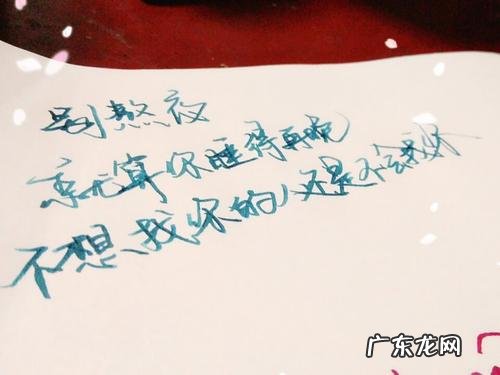 别熬夜
就算你睡得再晚
不想找你的人还是不会找你
广东龙网